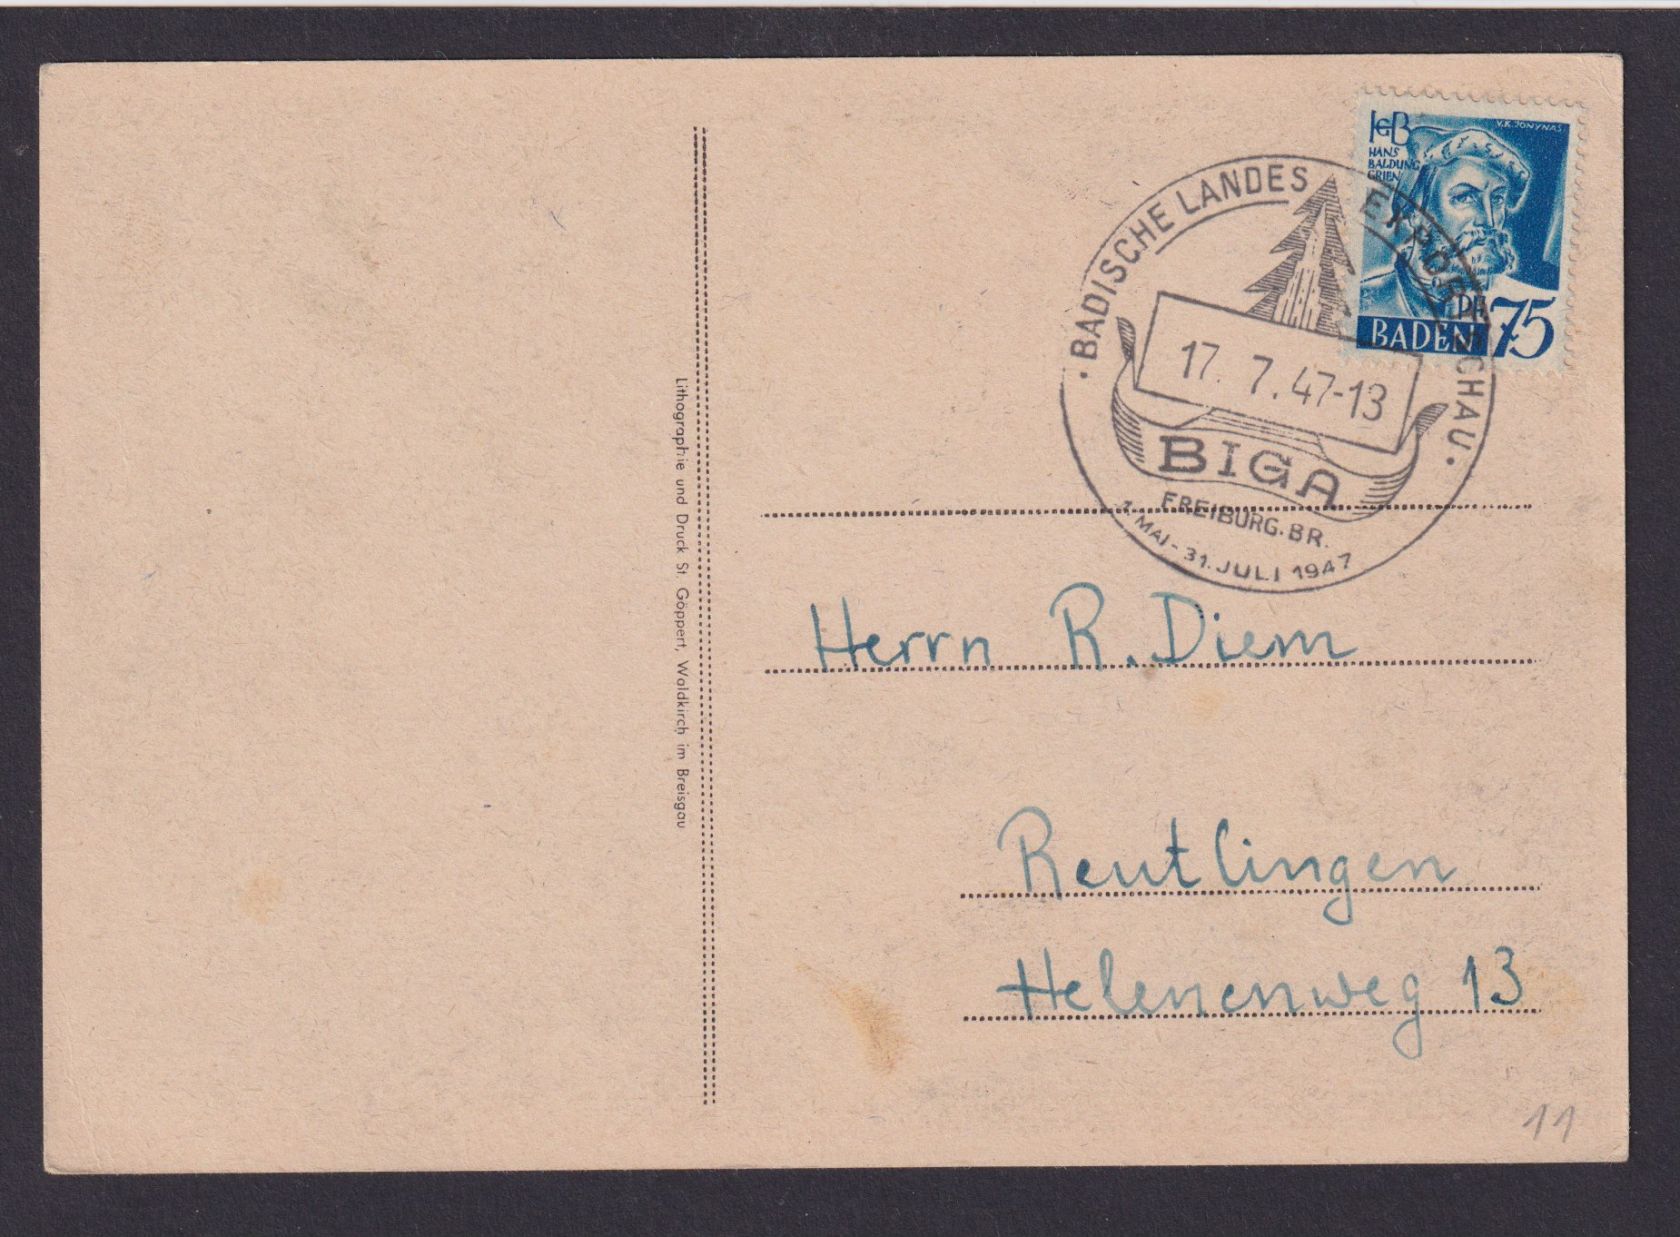 HGB
HANS
BALDUNG
GRIEN
V.K.JONYNAS
PF 75
BADEN
· BADISCHE LANDES EXPORTSCHAU ·
17. 7. 47-13
BIGA
FREIBURG.BR. 1
1. MAI - 31. JULI 1947
Lithographie und Druck St. Göppert, Waldkirch im Breisgau
Herrn R. Diem
Reutlingen
Helenenweg 13
11